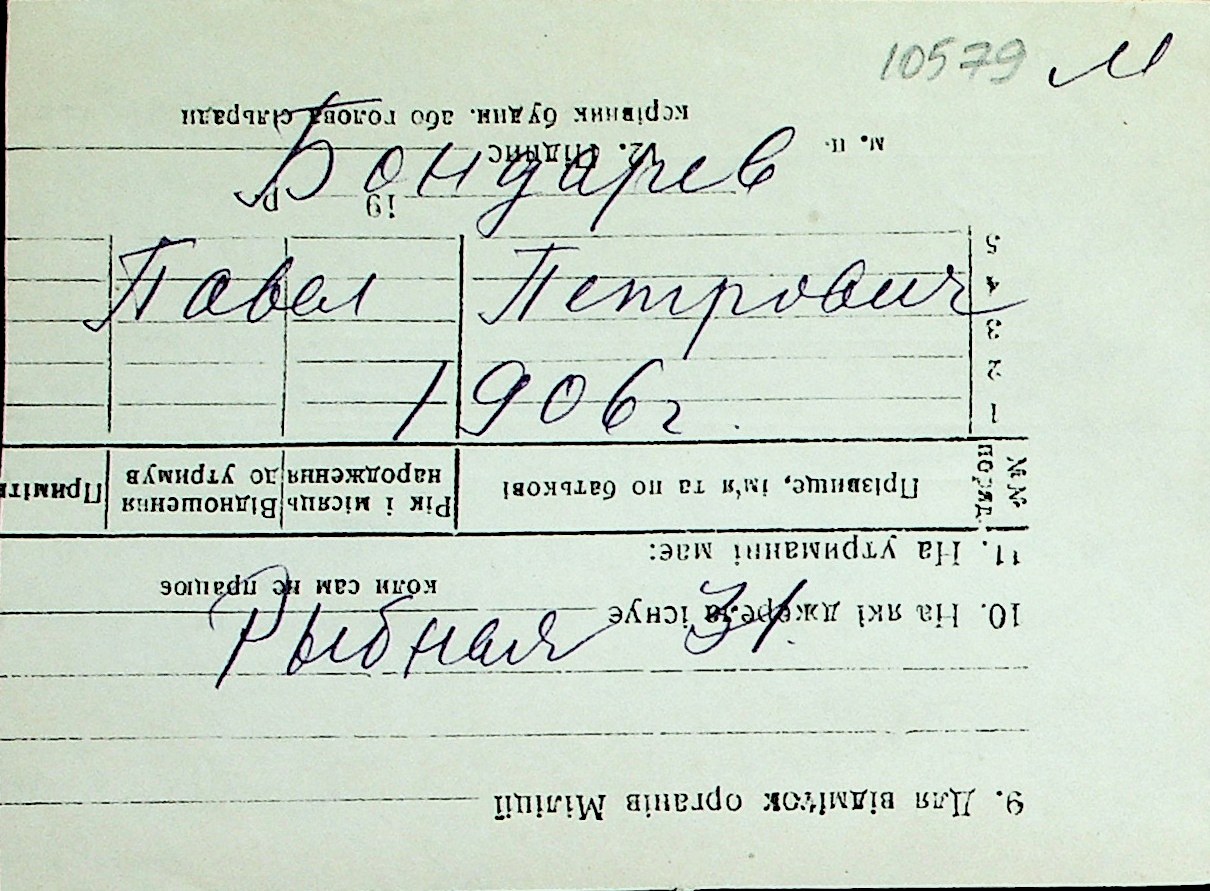 10579 М
Бондарев
Павел Петрович
1906 г.
Рыбная 31.
9. Для відміток органів Міліції
10. На які джерела існує
коли сам не працює
11. На утриманні має:
№№ по ряд.
Прізвище, ім'я та по батькові
Рік і місяць народження
Відношення до утримув
Приміт
1
2
3
4
5
19 р.
12. Підпис
м. п.
керівник будин. або голова сільради